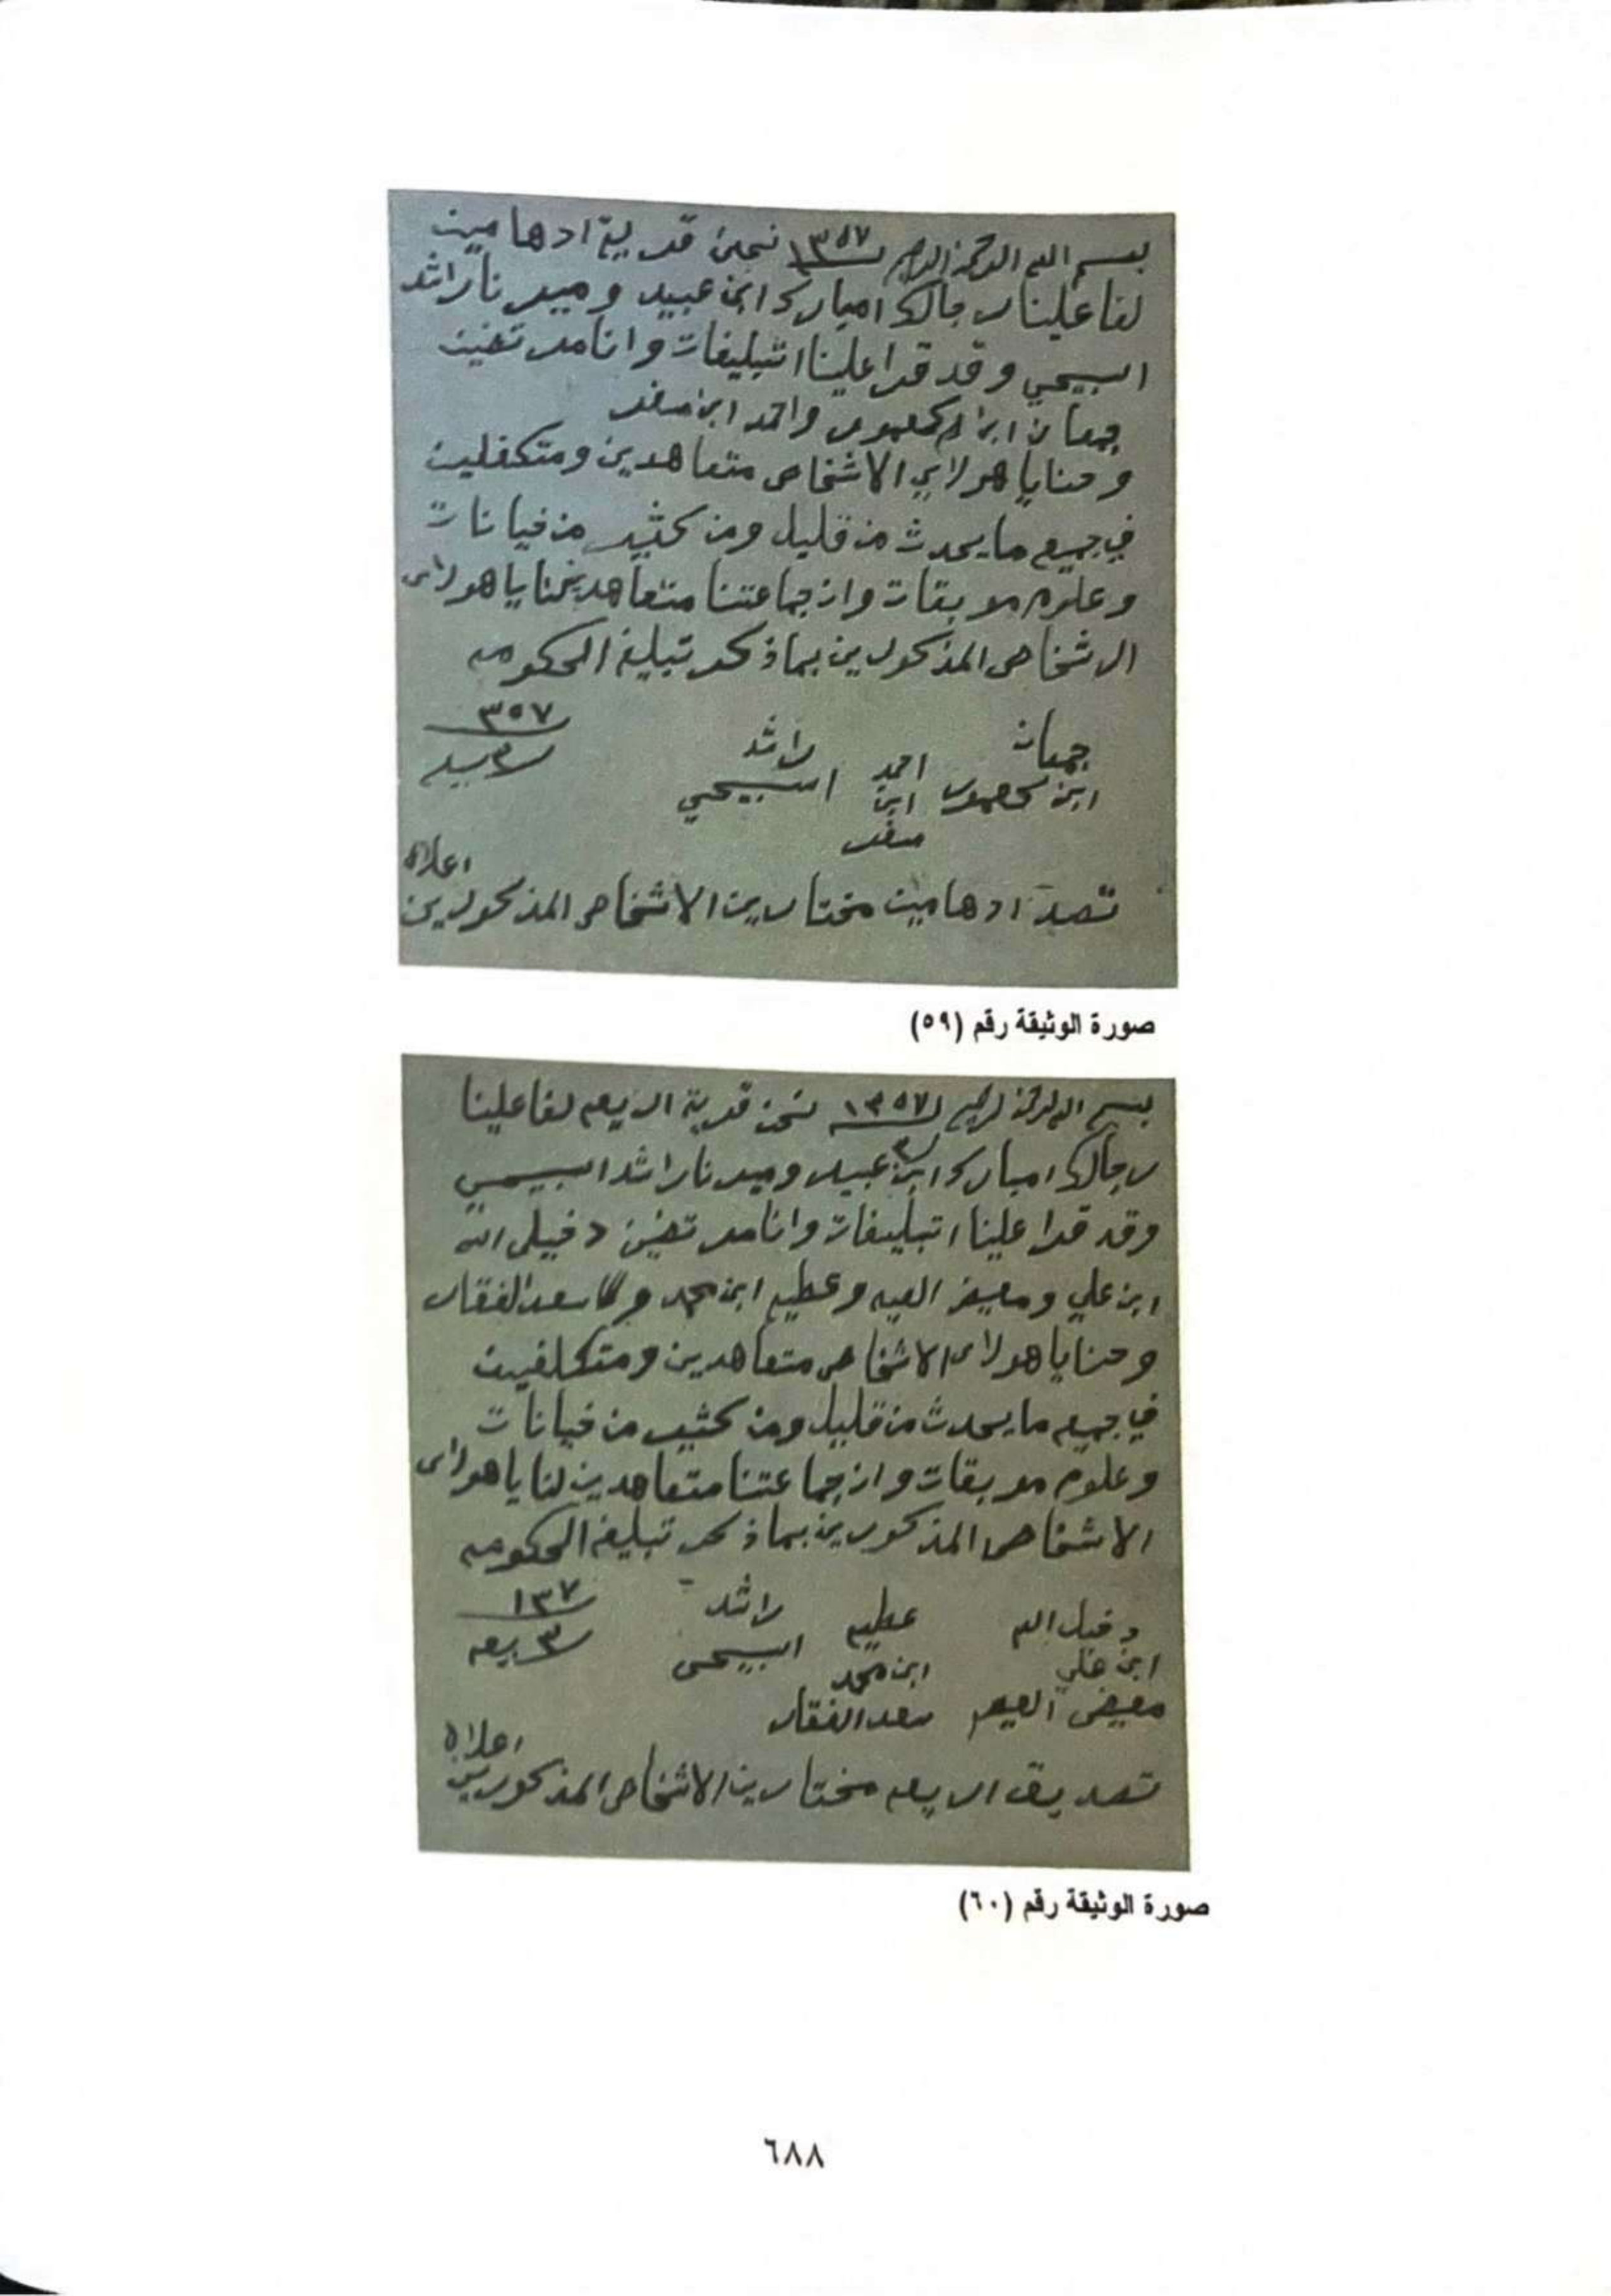 بسم الله الرحمن الرحيم ١٣٥٧ نحن قرية ادهامين
لفا علينا رجالك امبارك ابن عبيد وميرنا راشد
السبيحي وقد قرا علينا اتبليغات وانا مرتضين
جمعان ابن واحمد ابن صقر
وحنايا هولاي الاشخاص متعاهدين ومتكفلين
في جميع ما يحدث من قليل ومن كثير من خيانات
وعلوم موبقات وان جماعتنا متعاهدين هولاى
الاشخاص المذكورين بما ذكر تبليغ الحكومه
جمعان احمد راشد ٣٥٧
ابن ابن السبيحي
صقر
اعلاه
ادهامين مختارين الاشخاص المذكورين
صورة الوثيقة رقم (٥٩)
بسم الله الرحمن الرحيم ١٣٥٧ نحن قرية الريعه لفا علينا
رجالك امبارك ابن عبيد وميرنا راشد السبيحي
وقد قرا علينا اتبليغات وانا مرتضين دخيل الله
ابن علي ومعيض وعطيه ابن محمد سعد الفقار
وحنايا هولاى الاشخاص متعاهدين ومتكلفين
في جميع ما يحدث من قليل ومن كثير من خيانات
وعلوم موبقات وان جماعتنا متعاهدين لنا يا هولاى
الاشخاص المذكورين بما ذكر تبليغ الحكومه
دخيل الله عطيه راشد ١٣٧
ابن علي ابن محمد السبيحى ٣ ريعه
معيض سعد الفقار
اعلاه
تصديق الريعه مختارين الاشخاص المذكورين
صورة الوثيقة رقم (٦٠)
٦٨٨